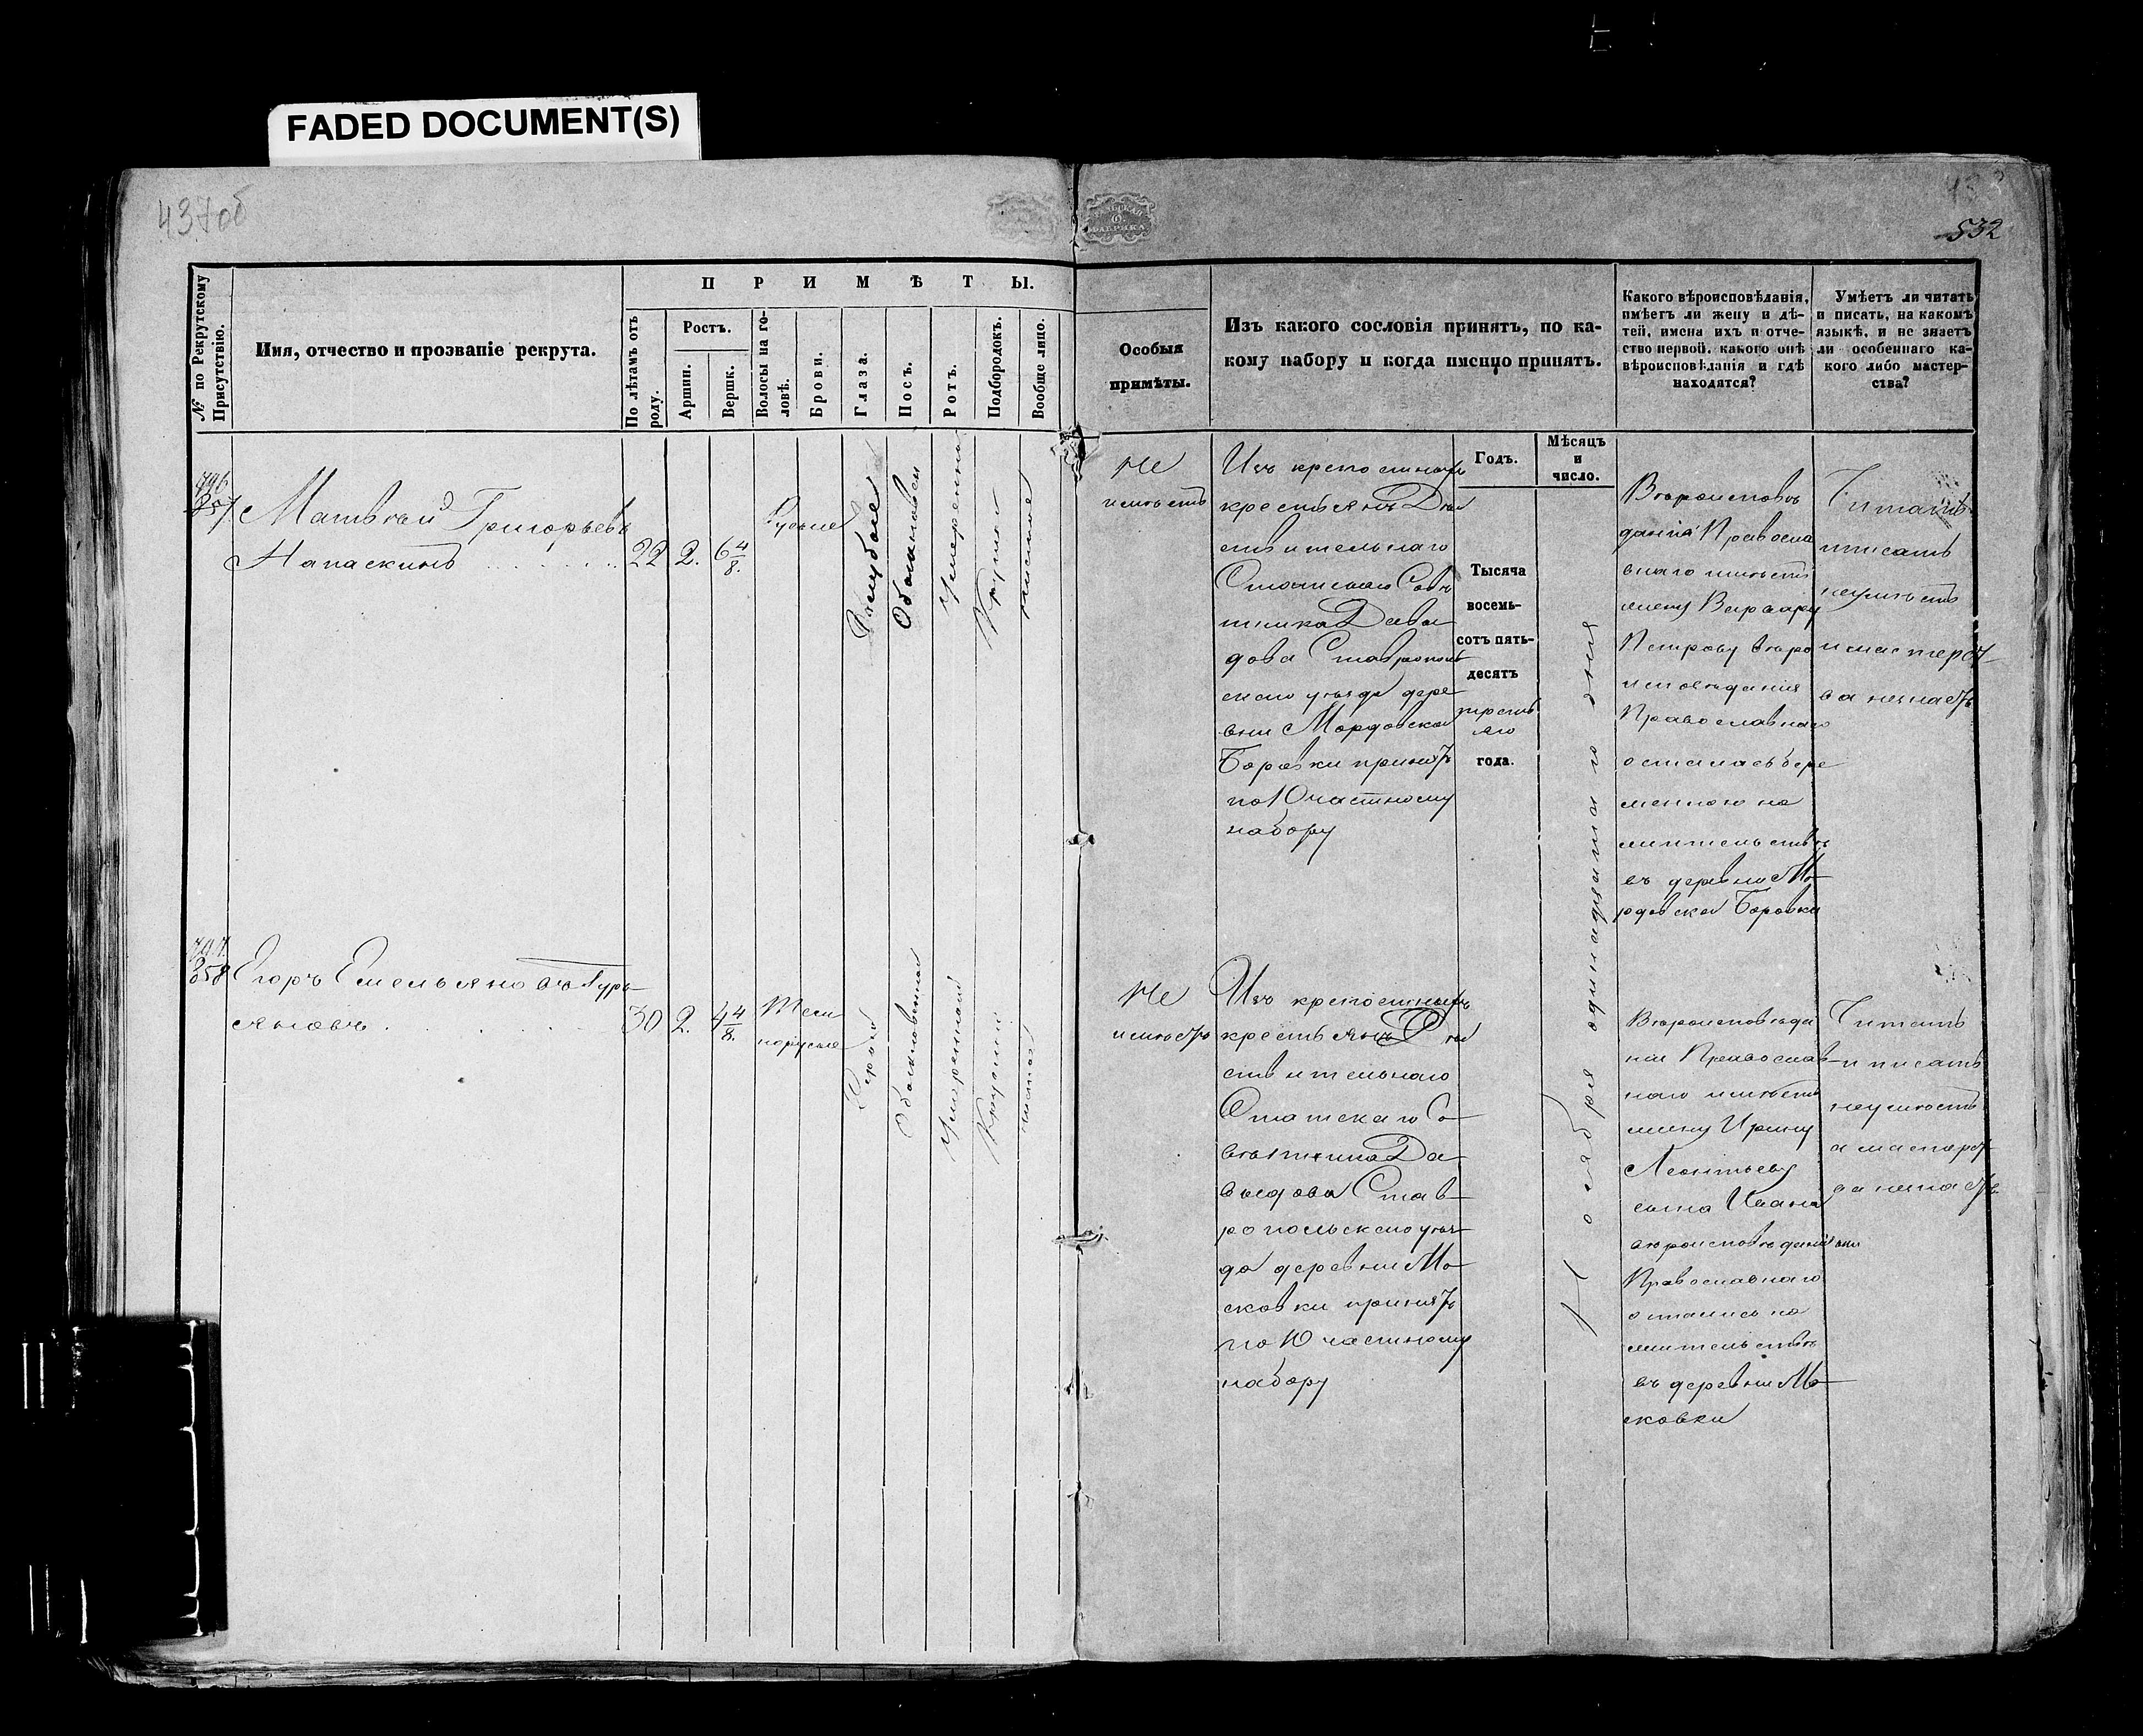 FADED DOCUMENT(S)
437об
532
№ по Рекрутскому Присутствію.
Имя, отчество и прозваніе рекрута.
ПРИМѢТЫ.
По лѣтамъ отъ роду.
Ростъ.
Аршин.
Вершк.
Волосы на головѣ.
Брови.
Глаза.
Носъ.
Ротъ.
Подбородокъ.
Вообще лицо.
Особыя
примѣты.
Изъ какого сословія принятъ, по ка-
кому набору и когда именно принятъ.
Какого вѣроисповѣданія,
имѣетъ ли жену и дѣ-
тей, имена ихъ и отче-
ство первой, какого онѣ
вѣроисповѣданія и гдѣ
находятся?
Умѣетъ ли читать
и писать, на какомъ
языкѣ, и не знаетъ
ли особеннаго ка-
кого либо мастер-
ства?
Годъ.
Мѣсяцъ
и
число.
796
357
Матвѣй Григорьевъ
Напаскинъ
22
2.
6 4/8.
Русые
Голубые
Обыкновен
Умеренный
Круглой
чистое
Не
имѣетъ
Изъ крепостныхъ
крестьянъ Дѣй
ствительнаго
Статскаго Совѣ
тника Давы
дова Ставрополь
скаго уѣзда дере
вни Мордовской
Боровки принятъ
по 10 частному
набору
Тысяча
восемь-
сотъ пять-
десятъ
третья
го
года.
Ноября одинадцатаго дня
Вѣроисповѣ
данія Правосла
внаго имѣетъ
жену Варвару
Петрову вѣро
исповѣданія
Православнаго
осталась бере
менною на
жительствѣ
въ деревни Мо-
рдовской Боровки
Читать
писать
неумѣетъ
и мастерст-
ва незнаетъ
797
358
Егоръ Емельяновъ Турь-
яновъ
30
2.
4 4/8.
Темн
норусые
Серые
Обыкновенной
Умеренный
Круглой
чистое
Не
имѣетъ
Изъ крепостныхъ
крестьянъ Дѣй
ствительнаго
Статскаго Со-
вѣтника Да-
выдова Став-
ропольскаго уѣз-
да деревни Мо-
сковки принятъ
по 10 частному
набору
Вѣроисповѣда
нія Православ-
наго имѣетъ
жену Ирину
Леонтьеву
сына Ивана
вѣроисповѣданія они
Православнаго
остались на
жительствѣ
въ деревни Мо-
сковки
Читать
и писать
неумѣетъ
а мастерст-
ва незнаетъ